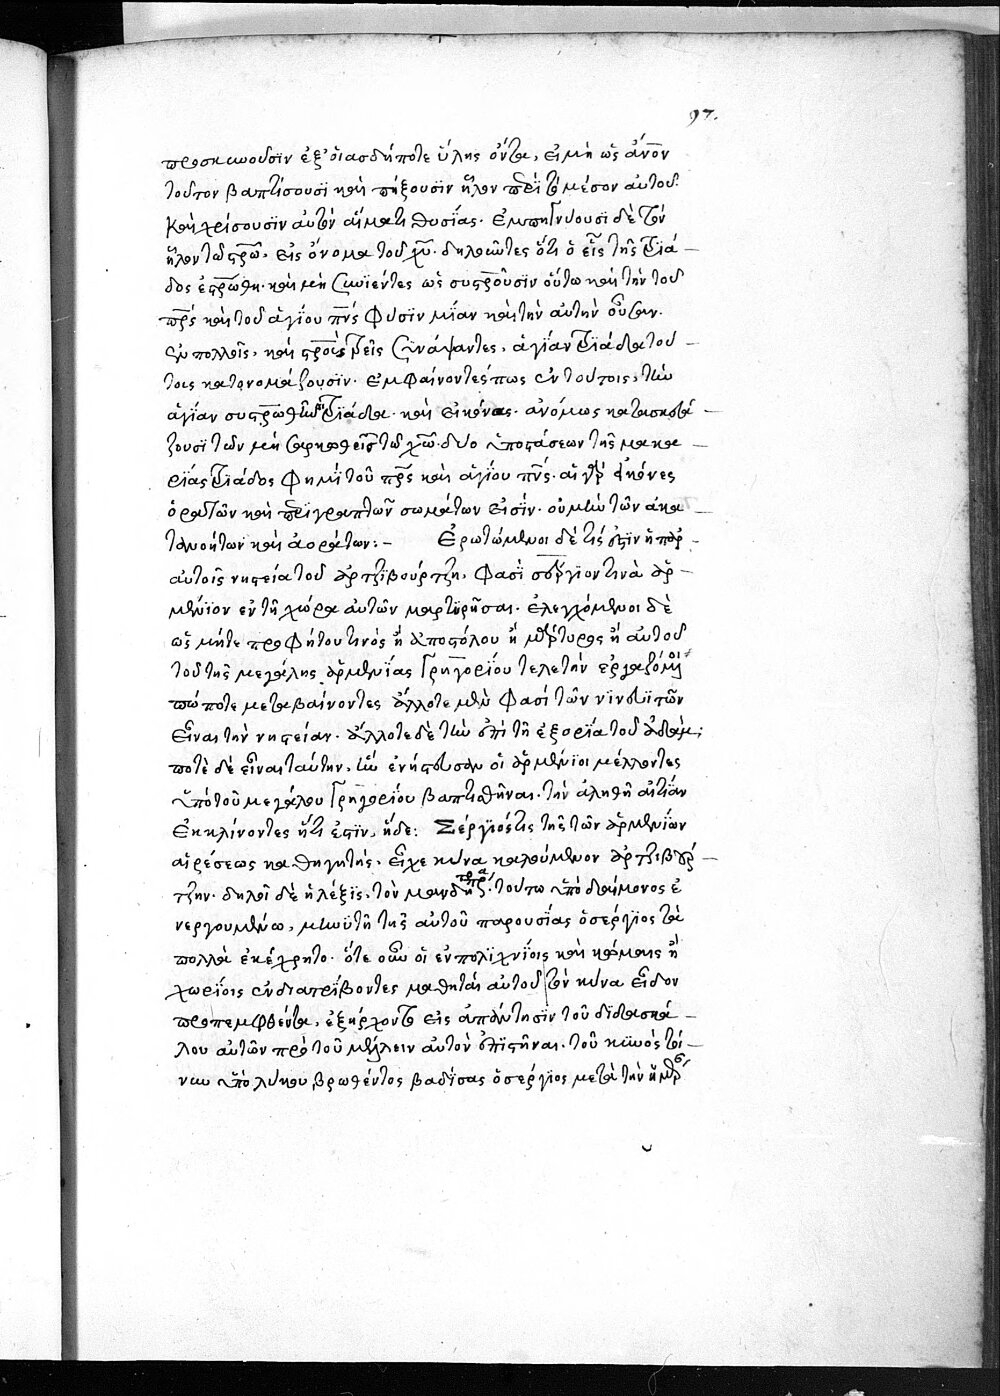 97.
προσκυνοῦσιν ἐξ οἱασδήποτε ὕλης ὄντα, εἰ μὴ ὡς ἄνον
τοῦτον βαπτίσουσι καὶ πήξουσιν ἧλον περὶ τὸ μέσον αὐτοῦ.
καὶ χρίσουσιν αὐτὸν αἵματι θυσίας. ἐμπηγνύουσι δὲ τὸν
ἧλον τῷ στρῶ, εἰς ὄνομα τοῦ χυ. δηλοῦντες ὅτι ὁ εἷς τῆς τριά –
δος ἐστρώθη. καὶ μὴ συνιέντες ὡς συστροῦσιν οὕτω καὶ τὴν τοῦ
πρς καὶ τοῦ ἁγίου πνς φύσιν μίαν καὶ τὴν αὐτὴν οὖσαν.
ἐν πολλοῖς, καὶ στροὺς τρεῖς συνάψαντες, ἁγίαν τριάδα τού –
τοις κατονομάζουσιν. ἐμφαίνοντές πως ἐν τούτοις, τὴν
ἁγίαν συστρωθῆναι τριάδα. καὶ εἰκόνας ἀνόμως κατασκευά –
ζουσι τῶν μὴ σαρκωθεισῶν δύο ὑποστάσεων τῆς μακα –
ρίας τριάδος φημὶ τοῦ πρς καὶ ἁγίου πνς. αἱ γὰρ εἰκόνες
ὁρατῶν καὶ περιγραπτῶν σωμάτων εἰσίν. οὐ μὴν τῶν ἀκα –
τανοήτων καὶ ἀοράτων: – Ἐρωτώμενοι δὲ τίς ἐστιν ἡ παρ –
αὐτοῖς νηστεία τοῦ ἀρτζιβούρτζη, φασὶ σέργιόν τινα ἀρ –
μένιον ἐν τῇ χώρα αὐτῶν μαρτυρῆσαι. ἐλεγχόμενοι δὲ
ὡς μήτε προφήτου τινὸς ἢ ἀποστόλου ἢ μάρτυρος ἢ αὐτοῦ
τοῦ τῆς μεγάλης ἀρμενίας γρηγορίου τελετὴν ἐργαζόμενοι
πώποτε μεταβαίνοντες ἄλλοτε μὲν φασὶ τῶν νινευϊτῶν
εἶναι τὴν νηστείαν. ἄλλοτε δὲ τὴν ἐπὶ τῇ ἐξορία τοῦ ἀδάμ;
ποτὲ δὲ εἶναι ταύτην, ἣν ἐνήστευσαν οἱ ἀρμένιοι μέλλοντες
ὑπὸ τοῦ μεγάλου γρηγορίου βαπτισθῆναι. τὴν ἀληθῆ αἰτίαν
ἐκκλίνοντες ἥτις ἐστὶν, ἥδε: Σέργιός τις τῆς τῶν ἀρμενίων
αἱρέσεως καθηγητής, εἶχε κύνα καλούμενον ἀρτζιβούρ –
τζην. δηλοῖ δὲ ἡ λέξις, τὸν μανδ τούτω ὑπὸ δαίμονος ἐ
νεργουμένω, μηνυτῆ τῆς αὐτοῦ παρουσίας ὁ σέργιος τὰ
πολλὰ ἐκέχρητο. ὅτε οὖν οἱ ἐν πολιχνίοις καὶ κώμαις ἢ
χωρίοις ἐνδιατρίβοντες μαθηταὶ αὐτοῦ τὸν κύνα εἶδον
προπεμφθέντα, ἐξήρχοντο εἰς ἀπάντησιν τοῦ διδασκά –
λου αὐτῶν πρὸ τοῦ μέλλειν αὐτὸν ἐπιστῆναι. τοῦ κυνὸς τοί –
νυν ὑπὸ λύκου βρωθέντος βαδίσας ὁ σέργιος μετὰ τὴν ἡμέρ